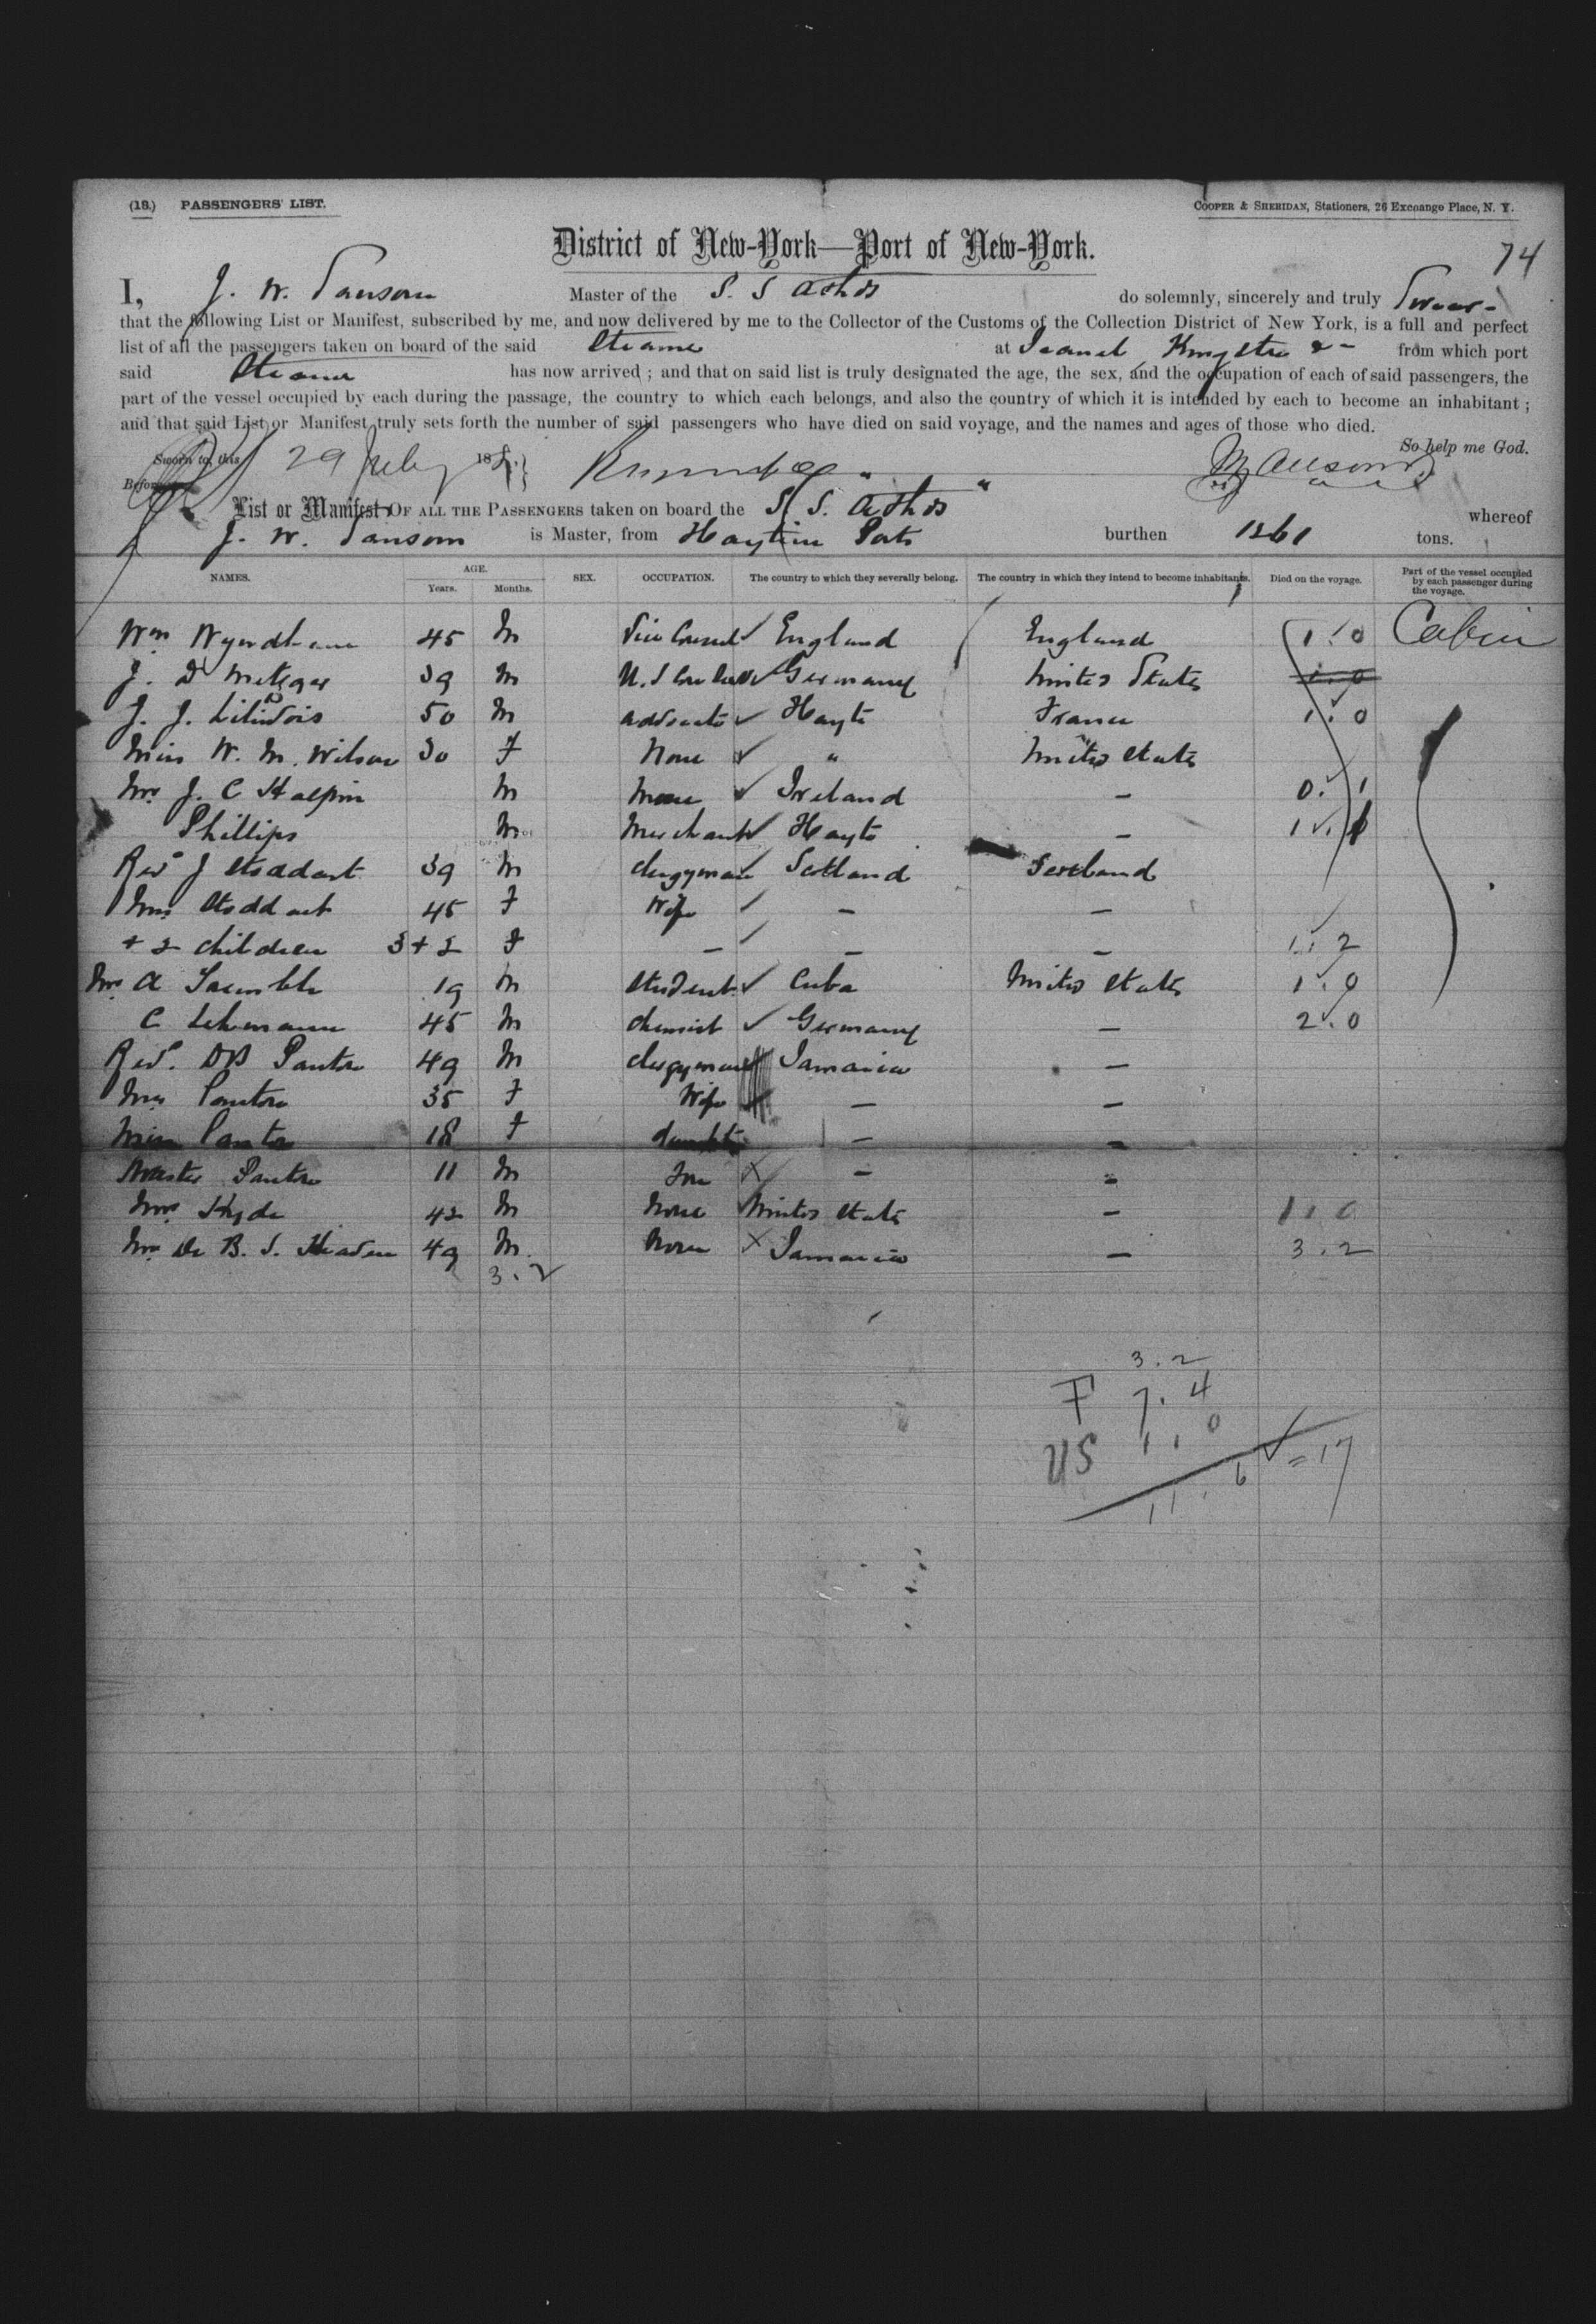 (18.) PASSENGERS' LIST.
COOPER & SHERIDAN, Stationers, 26 Exchange Place, N. Y.
District of New-York—Port of New-York.
74
I, J. W. Sansom Master of the S. S Athos do solemnly, sincerely and truly Swear
that the following List or Manifest, subscribed by me, and now delivered by me to the Collector of the Customs of the Collection District of New York, is a full and perfect
list of all the passengers taken on board of the said Steamer at Kingston & from which port
said Steamer has now arrived ; and that on said list is truly designated the age, the sex, and the occupation of each of said passengers, the
part of the vessel occupied by each during the passage, the country to which each belongs, and also the country of which it is intended by each to become an inhabitant ;
and that said List or Manifest truly sets forth the number of said passengers who have died on said voyage, and the names and ages of those who died.
So help me God.
Sworn to, this 29 July 188
Before
List or Manifest OF ALL THE PASSENGERS taken on board the S. S. Athos whereof
J. W. Sansom is Master, from Haytien Ports burthen 1361 tons.
NAMES. AGE. Years. Months. SEX. OCCUPATION. The country to which they severally belong. The country in which they intend to become inhabitants. Died on the voyage. Part of the vessel occupied by each passenger during the voyage.
Wm Wyndham 45 M Vice Consul England England 1.0 Cabin
J. D Metzger 39 M U.S Germany United States 1.0
J. J. 50 M advocate Hayti France 1.0
Miss W. M. Wilson 30 F None " United States
Mr J. C Halpin M None Ireland — 0.1
Phillips M Merchant Hayti — 1.1
Revd J Stoddart 39 M clergyman Scotland Scotland
Mrs Stoddart 45 F Wife — —
+ 2 children 3+2 F — — — 1.2
Mr A 19 M Student Cuba United States 1.0
C Lehmann 45 M chemist Germany — 2.0
Revd. DB Panton 49 M clergyman Jamaica —
Mrs Panton 35 F Wife — —
Miss Panton 18 F daughter — —
Master Panton 11 M Son — —
Mr Hyde 42 M None United States — 1.0
Mr De B. S. 49 M. None Jamaica — 3.2
3.2
3.2
F 7.4
US 1.0
11.6 = 17